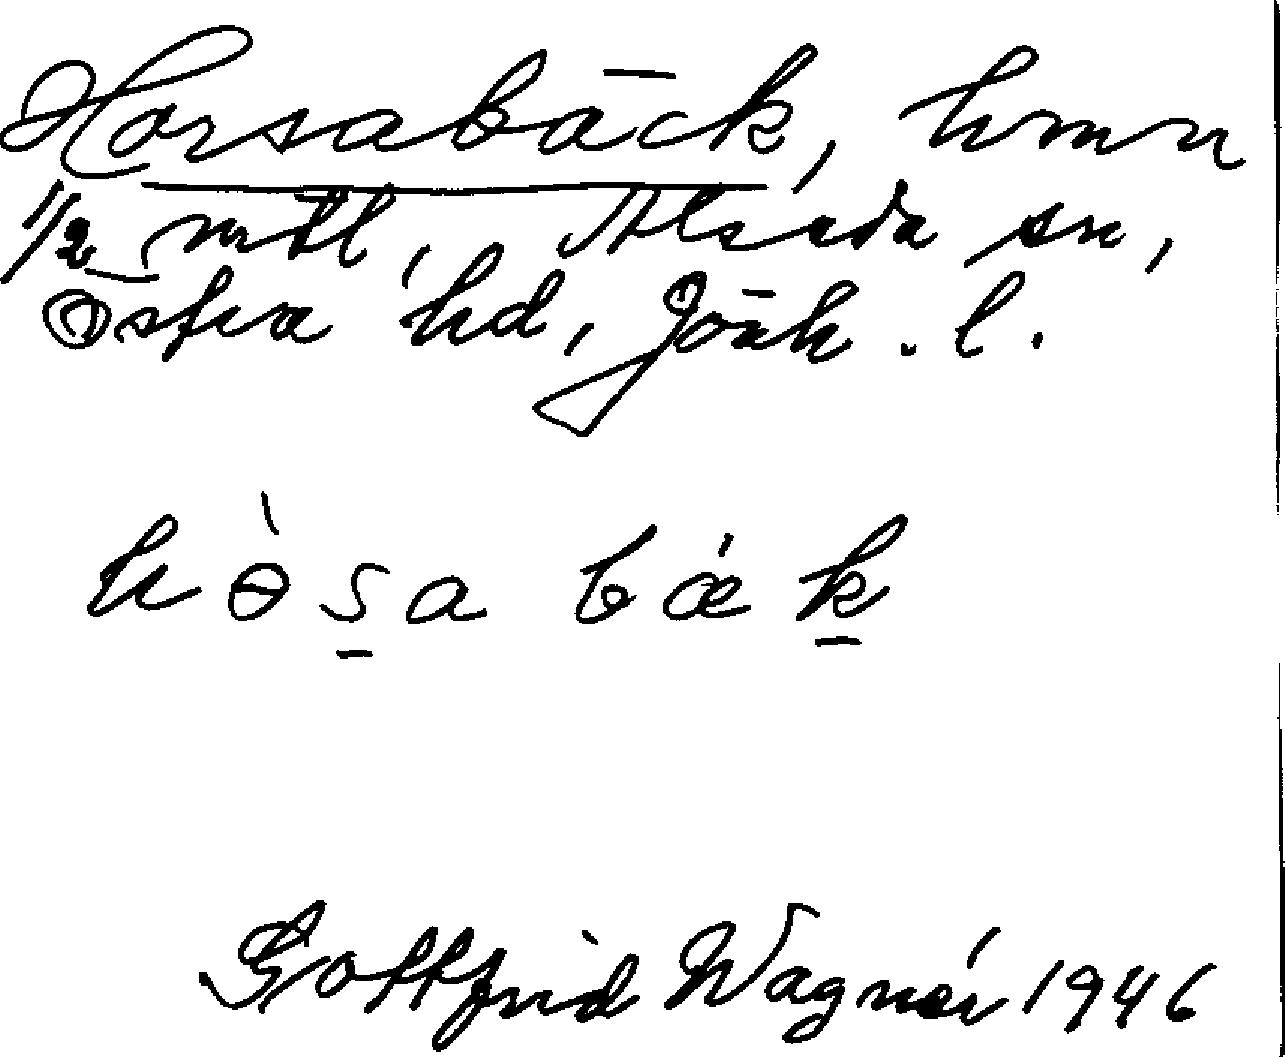 Horsabäck, hmn
1/2 mtl, Alseda sn,
Östra hd, Jönk. l.
hɵ̀s̠a bǽk̠
Gottfrid Wagnér 1946